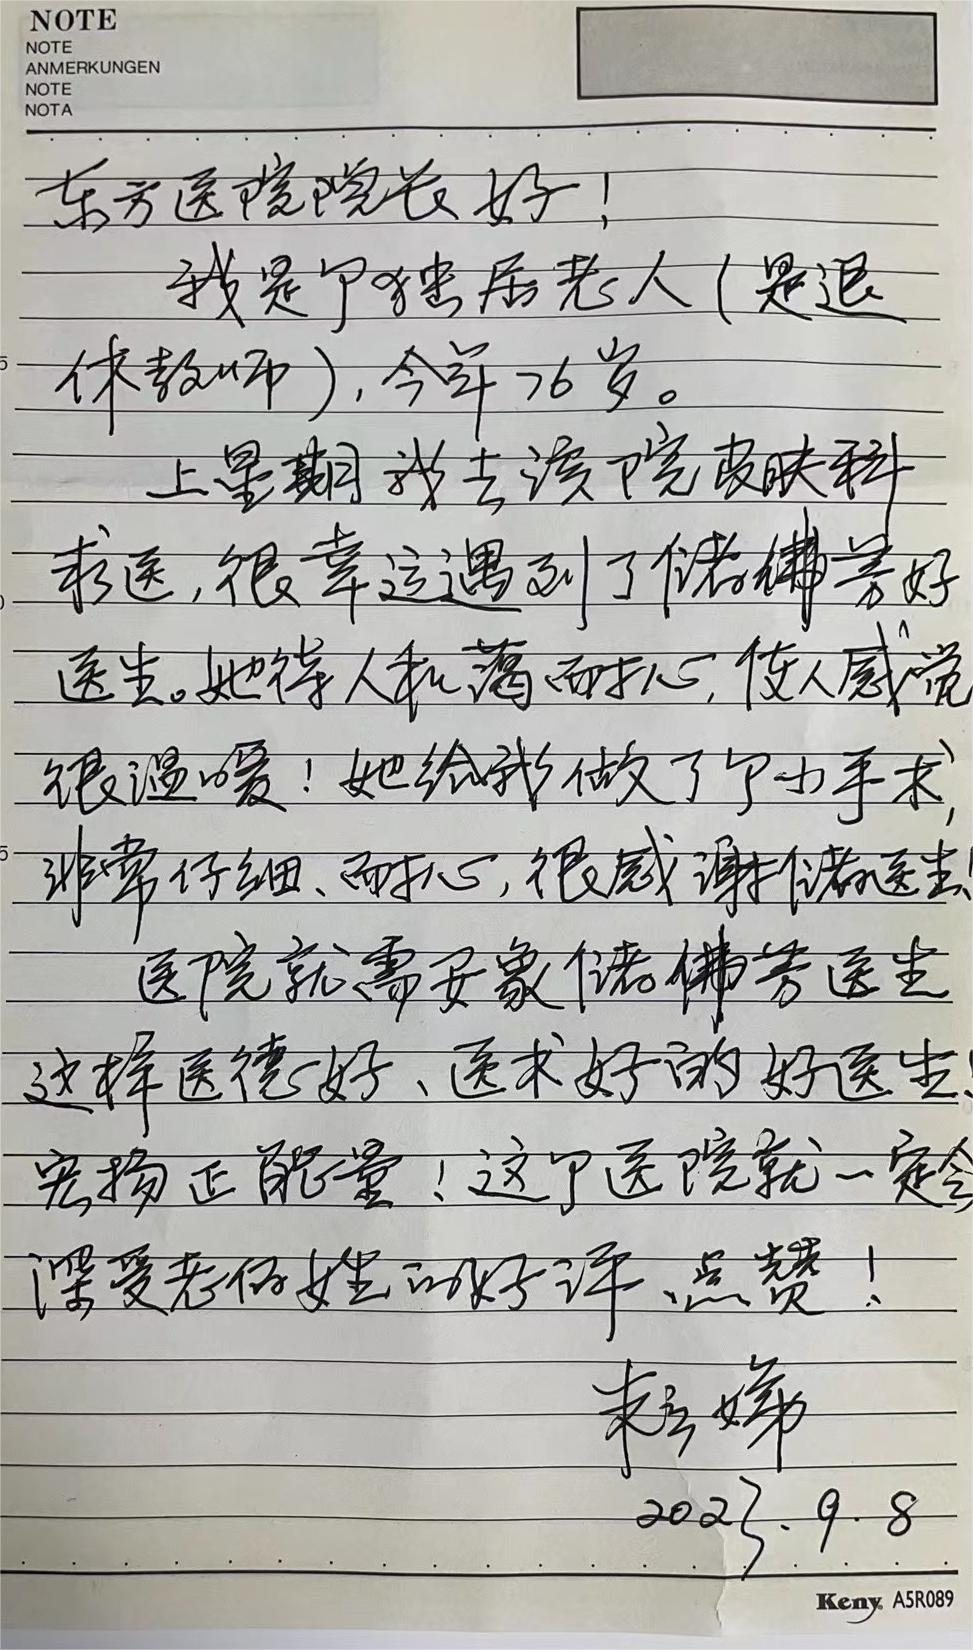 NOTE
NOTE
ANMERKUNGEN
NOTE
NOTA
东方医院院长好！
我是个独居老人（是退
休教师），今年76岁。
上星期我去该院皮肤科
求医，很幸运遇到了储佛芳好
医生。她待人和蔼耐心，使人感觉
很温暖！她给我做了个小手术，
非常仔细、耐心，很感谢储医生！
医院就需要象储佛芳医生
这样医德好、医术好的好医生！
宏扬正能量！这个医院就一定会
深受老百姓的好评、点赞！
娣
2023.9.8
Keny A5R089